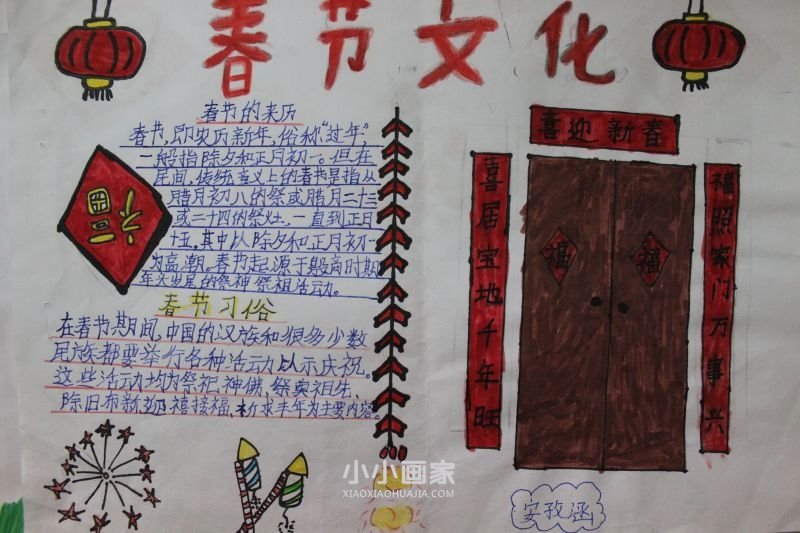 春节文化
春节的来历
春节,即农历新年,俗称“过年”,
一般指除夕和正月初一。但在
民间,传统意义上的春节是指从
腊月初八的祭或腊月二十三
或二十四的祭灶,一直到正月
十五,其中以除夕和正月初一
为高潮。春节起源于殷商时期
年头岁尾的祭神祭祖活动。
福
春节习俗
在春节期间,中国的汉族和很多少数
民族都要举行各种活动以示庆祝。
这些活动均为祭祀神佛,祭奠祖先、
除旧布新迎禧接福、祈求丰年为主要内容
喜迎新春
喜居宝地千年旺
福照家门万事兴
福
福
小小画家
XIAOXIAOHUAJIA.COM
安孜涵